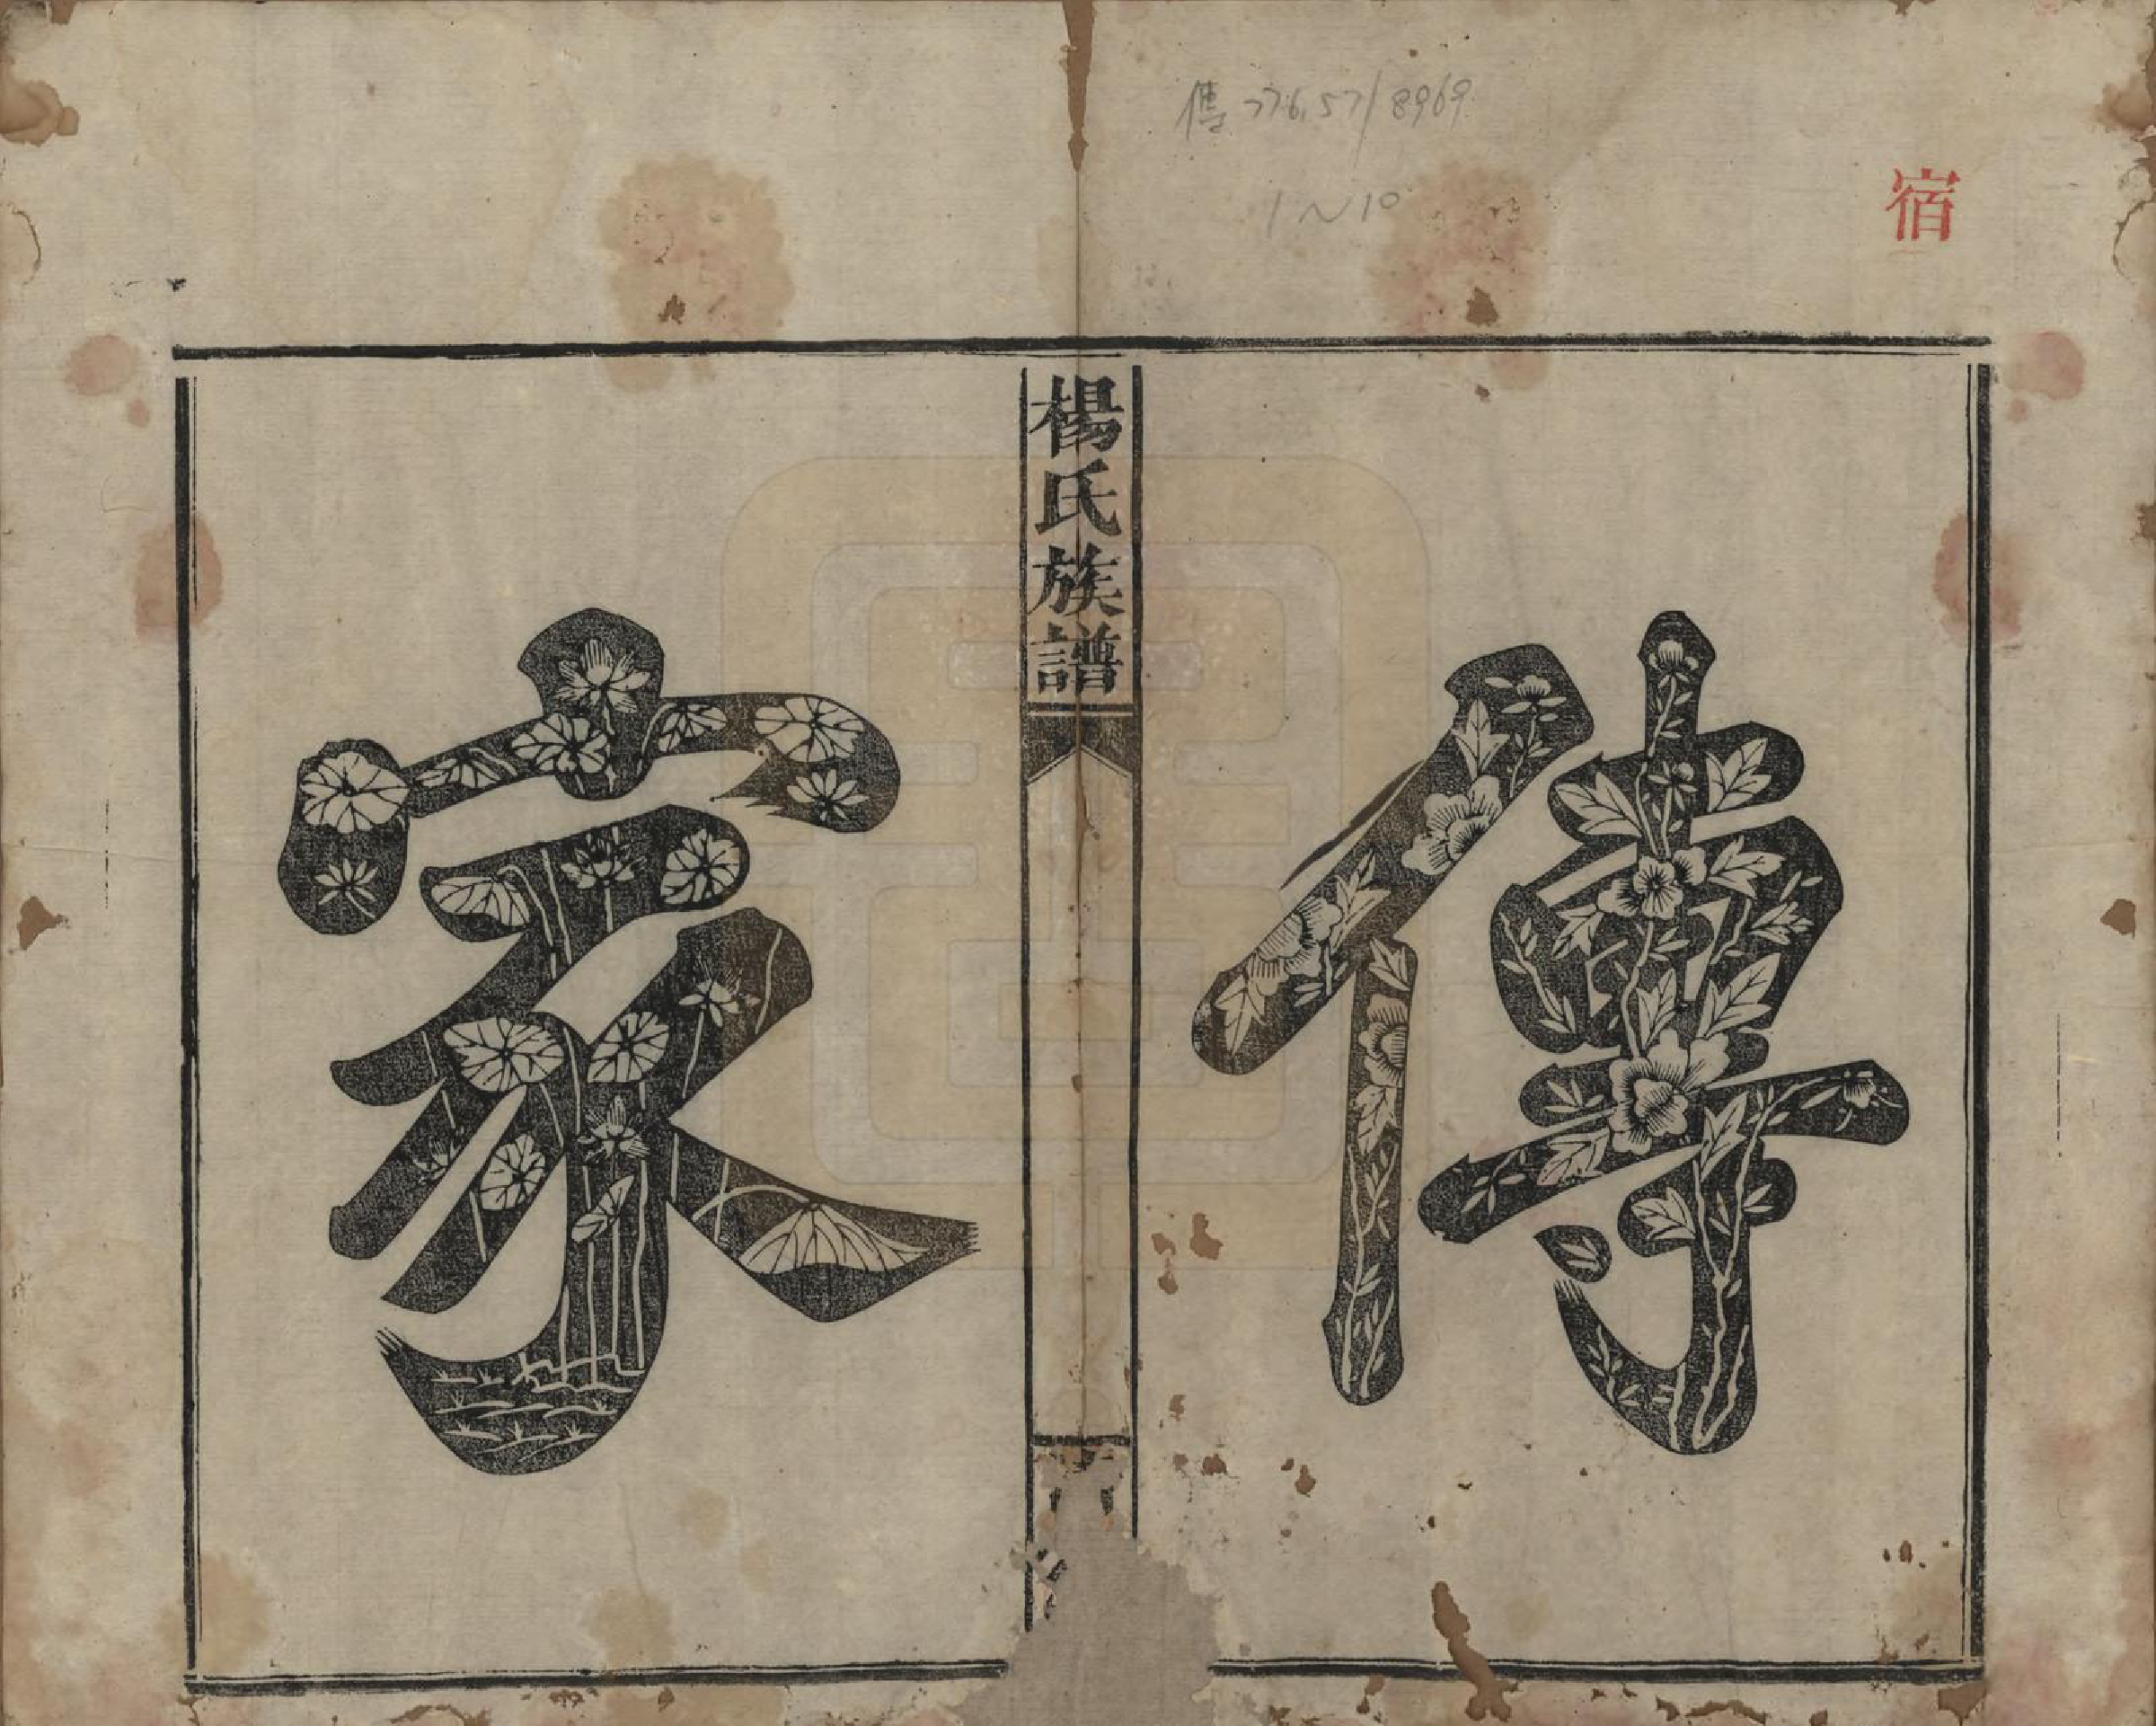 傳 776.57/8969
1~10
宿
傳
楊氏族譜
家